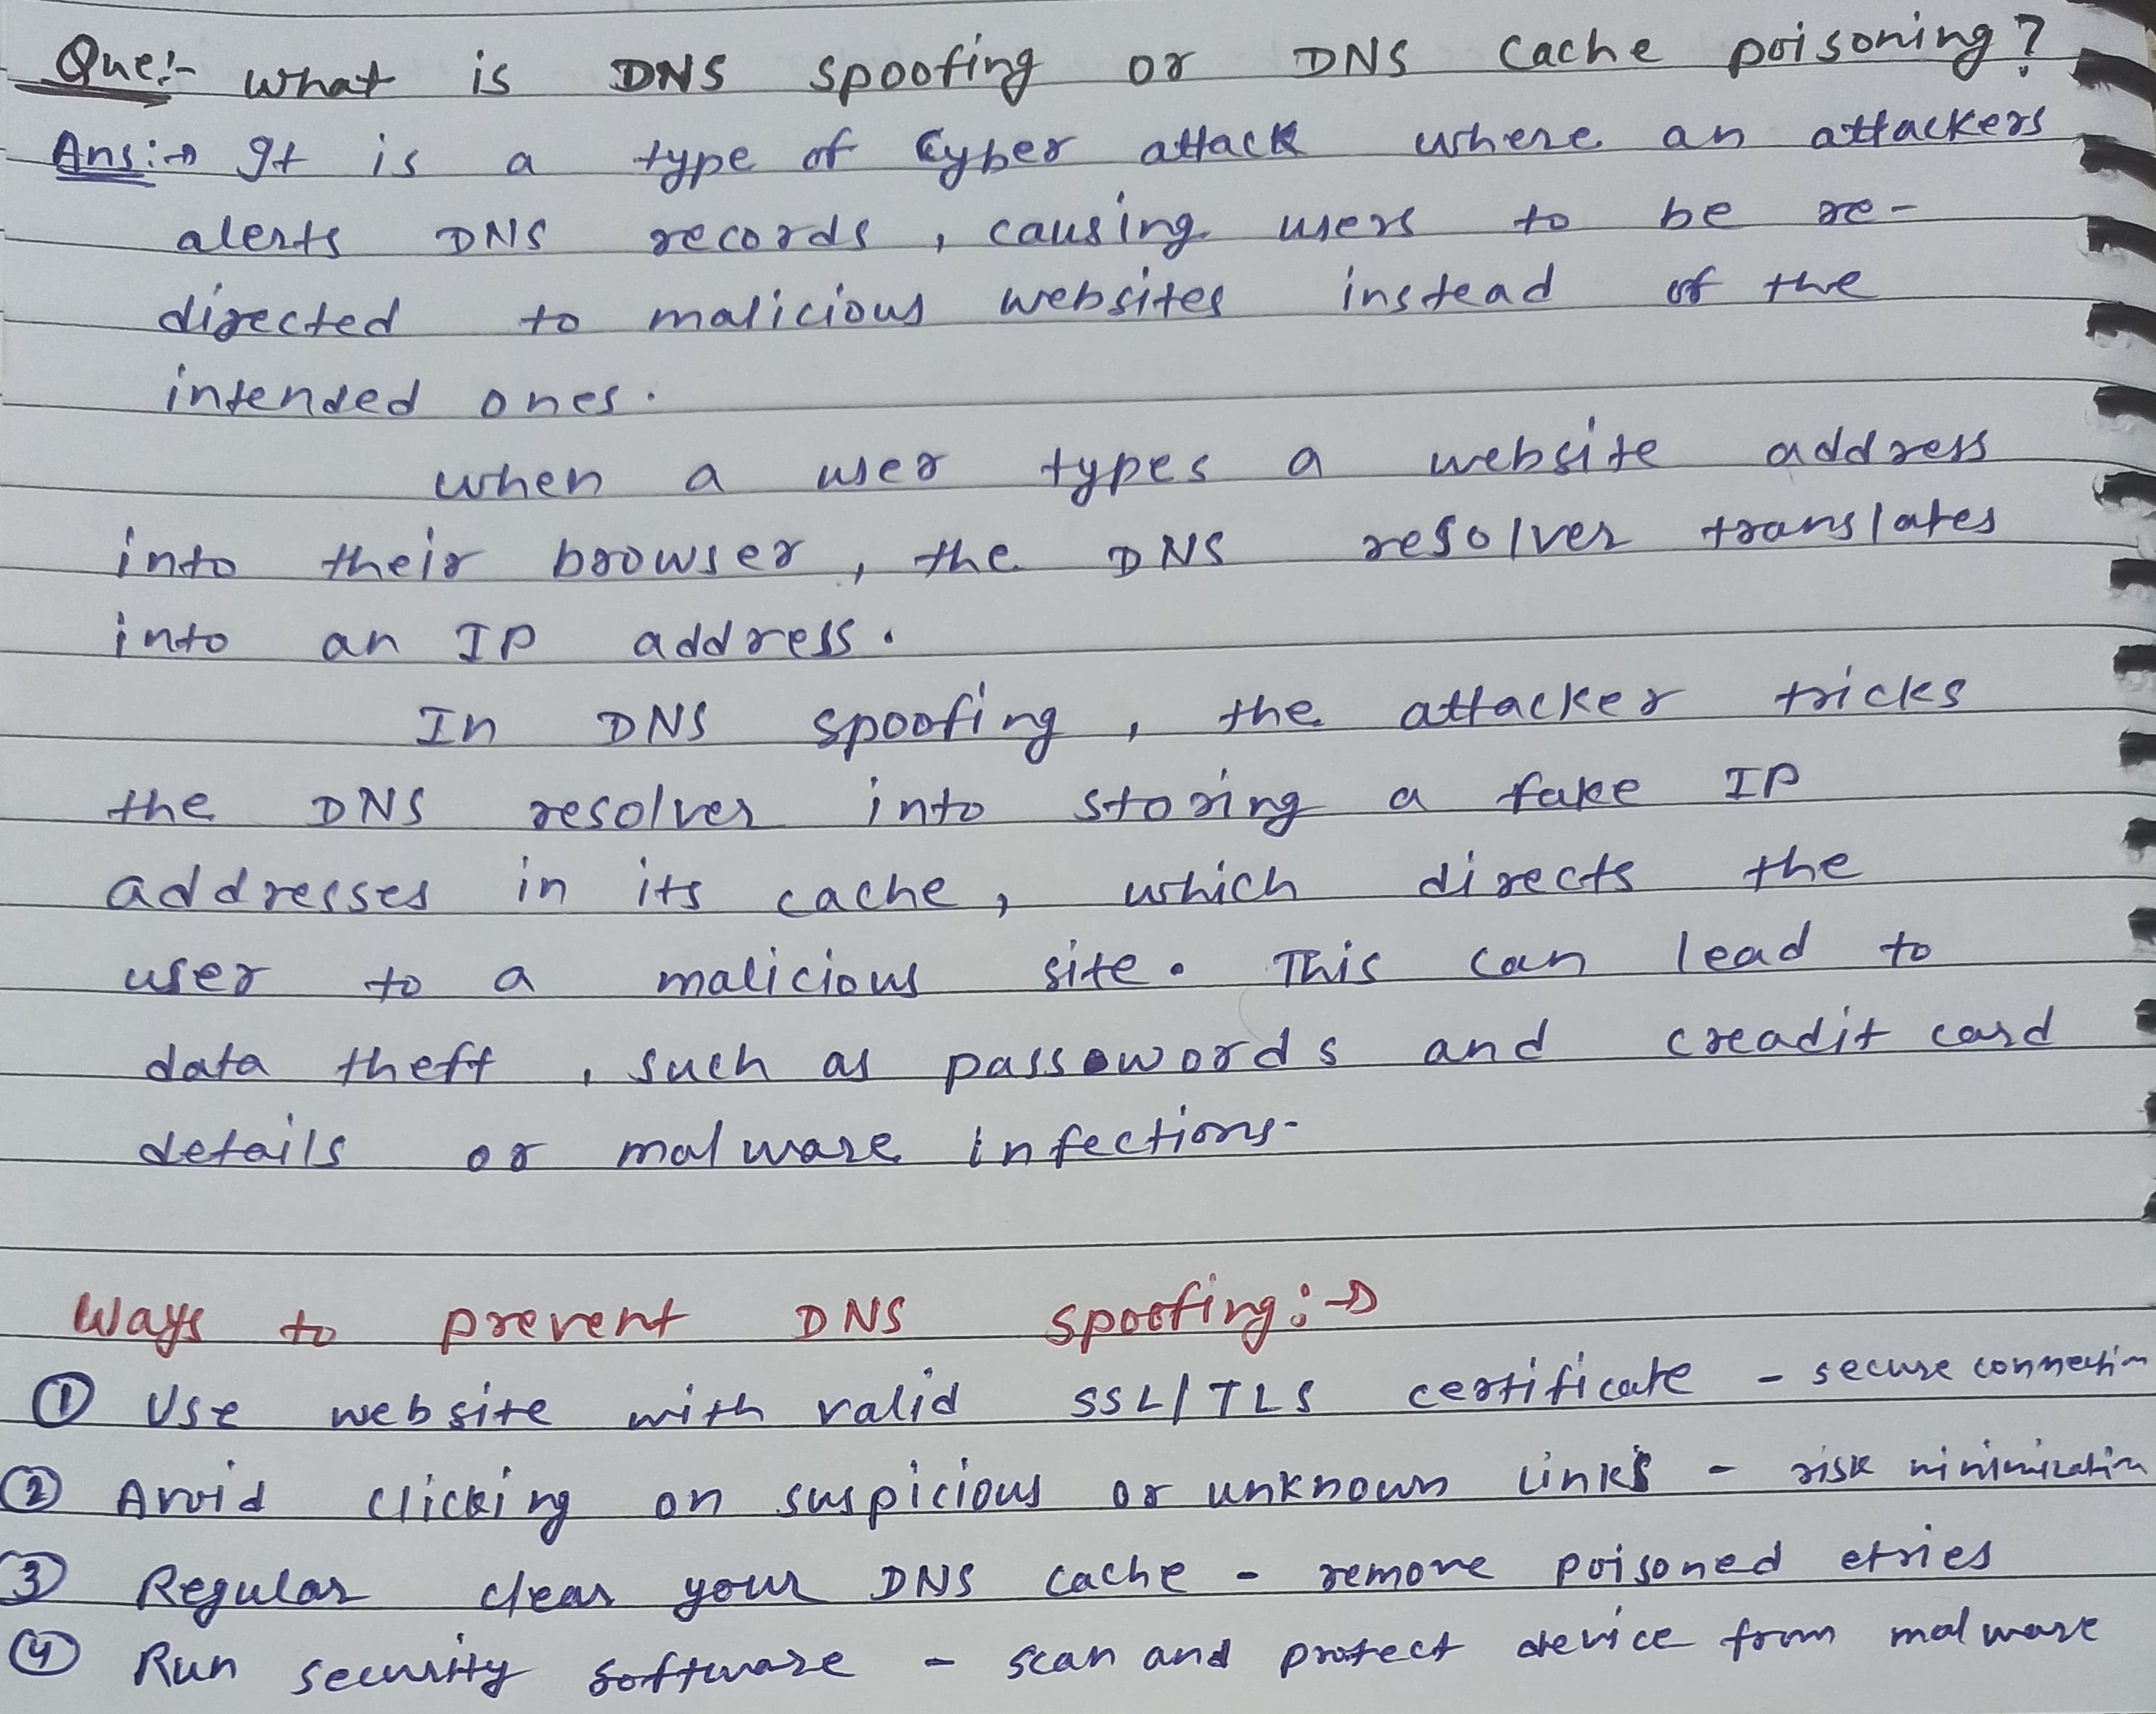 Que:- What is DNS spoofing or DNS Cache poisoning?
Ans:→ It is a type of Cyber attack where an attackers
alerts DNS records, causing users to be re-
directed to malicious websites instead of the
intended ones.
when a user types a website address
into their browser, the DNS resolver translates
into an IP address.
In DNS spoofing, the attacker tricks
the DNS resolver into storing a fake IP
addresses in its cache, which directs the
user to a malicious site. This can lead to
data theft, such as passwords and creadit card
details or malware infections.
Ways to prevent DNS spoofing:→
① Use website with valid SSL/TLS certificate - secure connection
② Avoid clicking on suspicious or unknown links - risk minimization
③ Regular clear your DNS cache - remove poisoned etries
④ Run security software - scan and protect device from malware